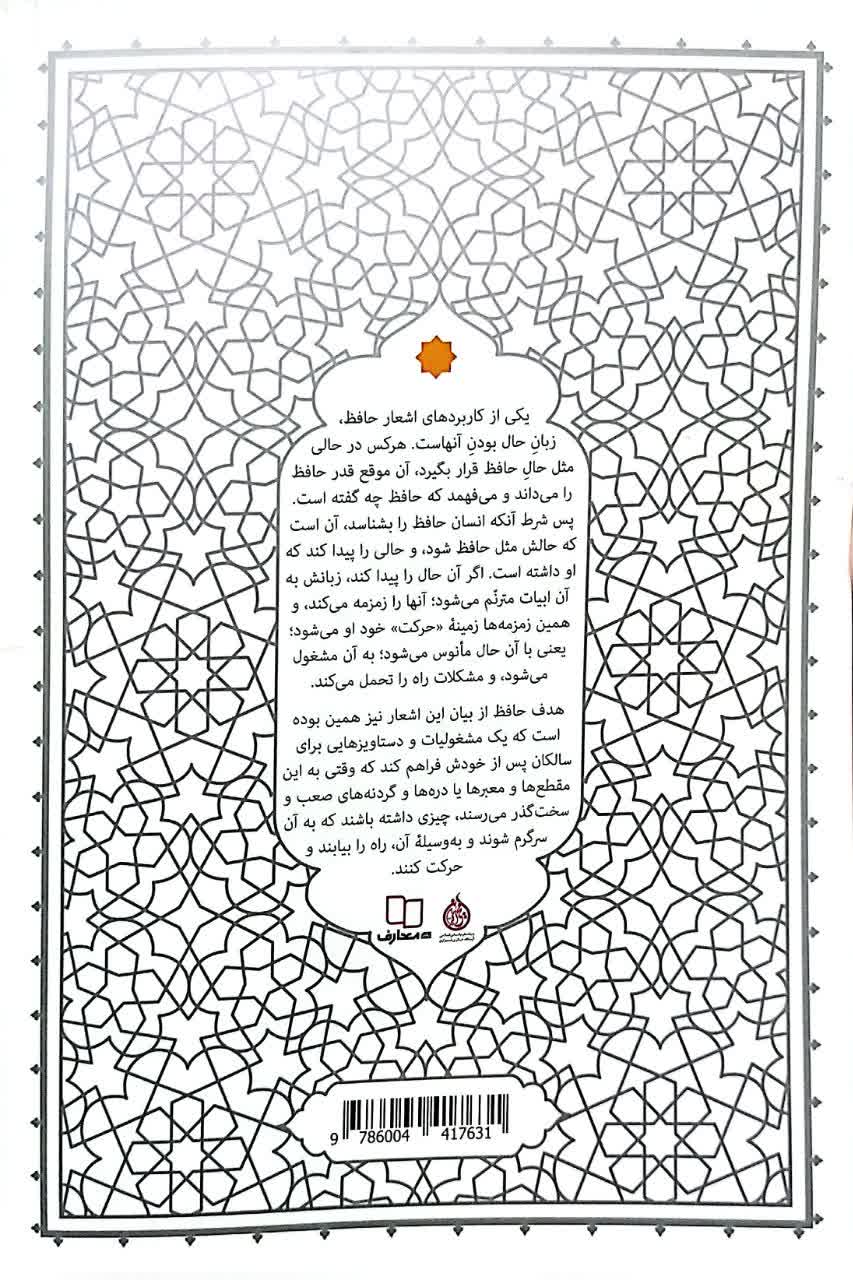 یکی از کاربردهای اشعار حافظ،
زبانِ حال بودنِ آنهاست. هرکس در حالی
مثل حالِ حافظ قرار بگیرد، آن موقع قدر حافظ
را می‌داند و می‌فهمد که حافظ چه گفته است.
پس شرط آنکه انسان حافظ را بشناسد، آن است
که حالش مثل حافظ شود، و حالی را پیدا کند که
او داشته است. اگر آن حال را پیدا کند، زبانش به
آن ابیات مترنّم می‌شود؛ آنها را زمزمه می‌کند، و
همین زمزمه‌ها زمینهٔ «حرکت» خود او می‌شود؛
یعنی با آن حال مأنوس می‌شود؛ به آن مشغول
می‌شود، و مشکلات راه را تحمل می‌کند.
هدف حافظ از بیان این اشعار نیز همین بوده
است که یک مشغولیات و دستاویزهایی برای
سالکان پس از خودش فراهم کند که وقتی به این
مقطع‌ها و معبرها یا دره‌ها و گردنه‌های صعب و
سخت‌گذر می‌رسند، چیزی داشته باشند که به آن
سرگرم شوند و به‌وسیلهٔ آن، راه را بیابند و
حرکت کنند.
معارف
9 786004 417631